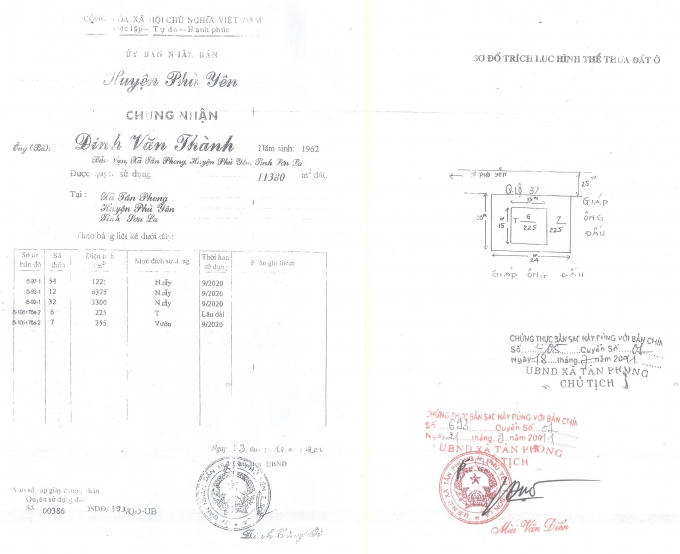 CỘNG HÒA XÃ HỘI CHỦ NGHĨA VIỆT NAM
Độc lập - Tự do - Hạnh phúc
ỦY BAN NHÂN DÂN
Huyện Phù Yên
CHỨNG NHẬN
Ông (Bà): Đinh Văn Thành Năm sinh: 1962
Bản Vạn, Xã Tân Phong, Huyện Phù Yên, Tỉnh Sơn La
Được quyền sử dụng 11380 m² đất
Tại : Xã Tân Phong
Huyện Phù Yên
Tỉnh Sơn La
Theo bảng liệt kê dưới đây:
Số tờ bản đồ Số thửa Diện tích m² Mục đích sử dụng Thời hạn sử dụng Phần ghi thêm
54 122 N.rẫy 9/2020
12 6375 N.rẫy 9/2020
32 3300 N.rẫy 9/2020
6 225 T Lâu dài
7 255 Vườn 9/2020
Ngày
UBND
Vào sổ cấp giấy chứng nhận
Quyền sử dụng đất
Số 00386 QSDĐ/ /QĐ-UB
SƠ ĐỒ TRÍCH LỤC HÌNH THỂ THỬA ĐẤT Ở
PHÙ YÊN
QLộ 37
25
GIÁP
ÔNG
ĐẨU
T 6
225
15
7
225
24
GIÁP ÔNG ĐẨU
CHỨNG THỰC BẢN SAO NÀY ĐÚNG VỚI BẢN CHÍNH
Số 705 Quyển Số 01
Ngày 18 tháng 2 năm 2011
UBND XÃ TÂN PHONG
CHỦ TỊCH
CHỨNG THỰC BẢN SAO NÀY ĐÚNG VỚI BẢN CHÍNH
Số 693 Quyển Số 01
Ngày 21 tháng 2 năm 2011
UBND XÃ TÂN PHONG
CHỦ TỊCH
Mùi Văn Diễn